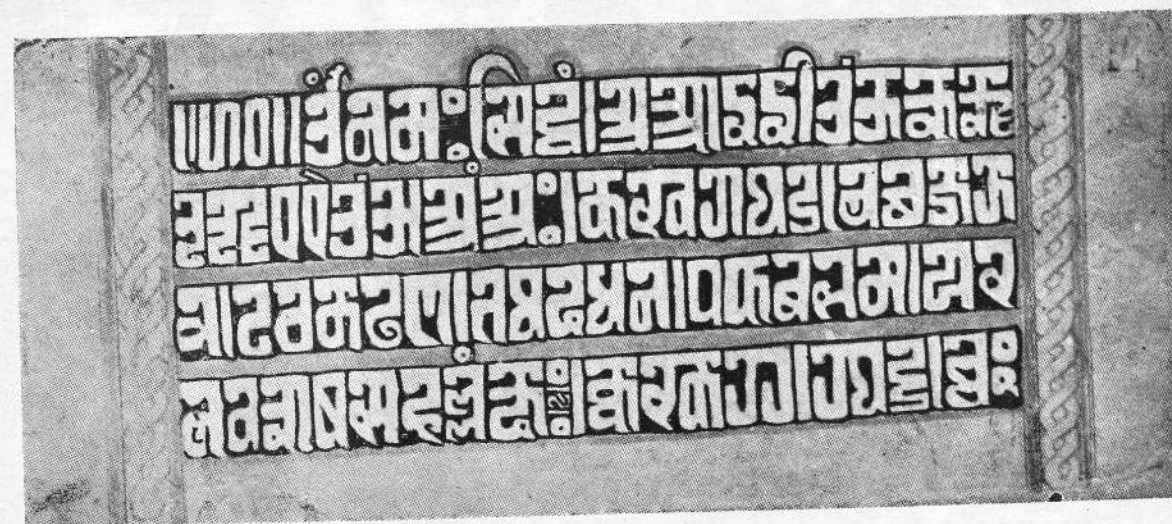 ॥६०॥ ॐ नमः। सिद्धं। अ आ इ ई उ ऊ ऋ ॠ
ऌ ॡ ए ऐ ओ औ अं अः। क ख ग घ ङ। च छ ज झ
ञ। ट ठ ड ढ ण। त थ द ध न। प फ ब भ म। य र
ल व श ष स ह लं क्षः।